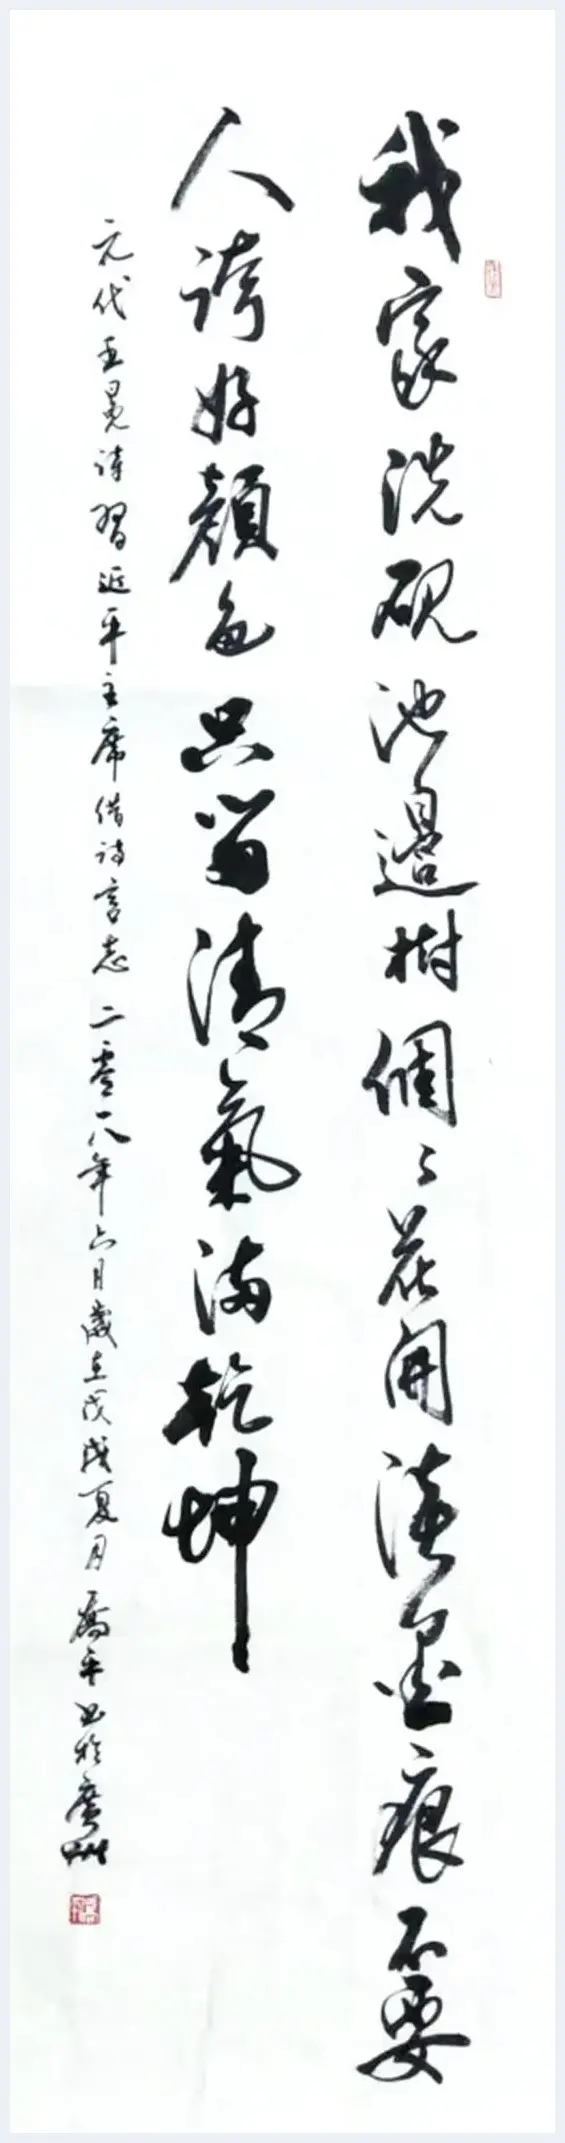 我家洗硯池邊樹個々花開淡墨痕不要
人誇好顏色只留清氣滿乾坤
元代王冕詩習近平主席借詩言志二零一八年六月歲在戊戌夏月喬平書於廣州